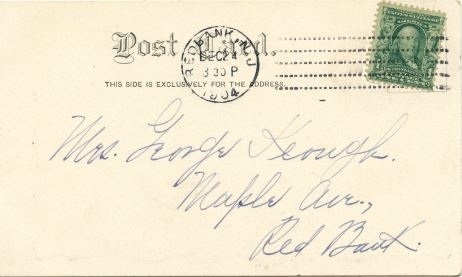 Post Card.
RED BANK, N.J.
DEC 24
3 30 P
1904
THIS SIDE IS EXCLUSIVELY FOR THE ADDRESS
Mrs. George Keough.
Maple Ave.,
Red Bank.